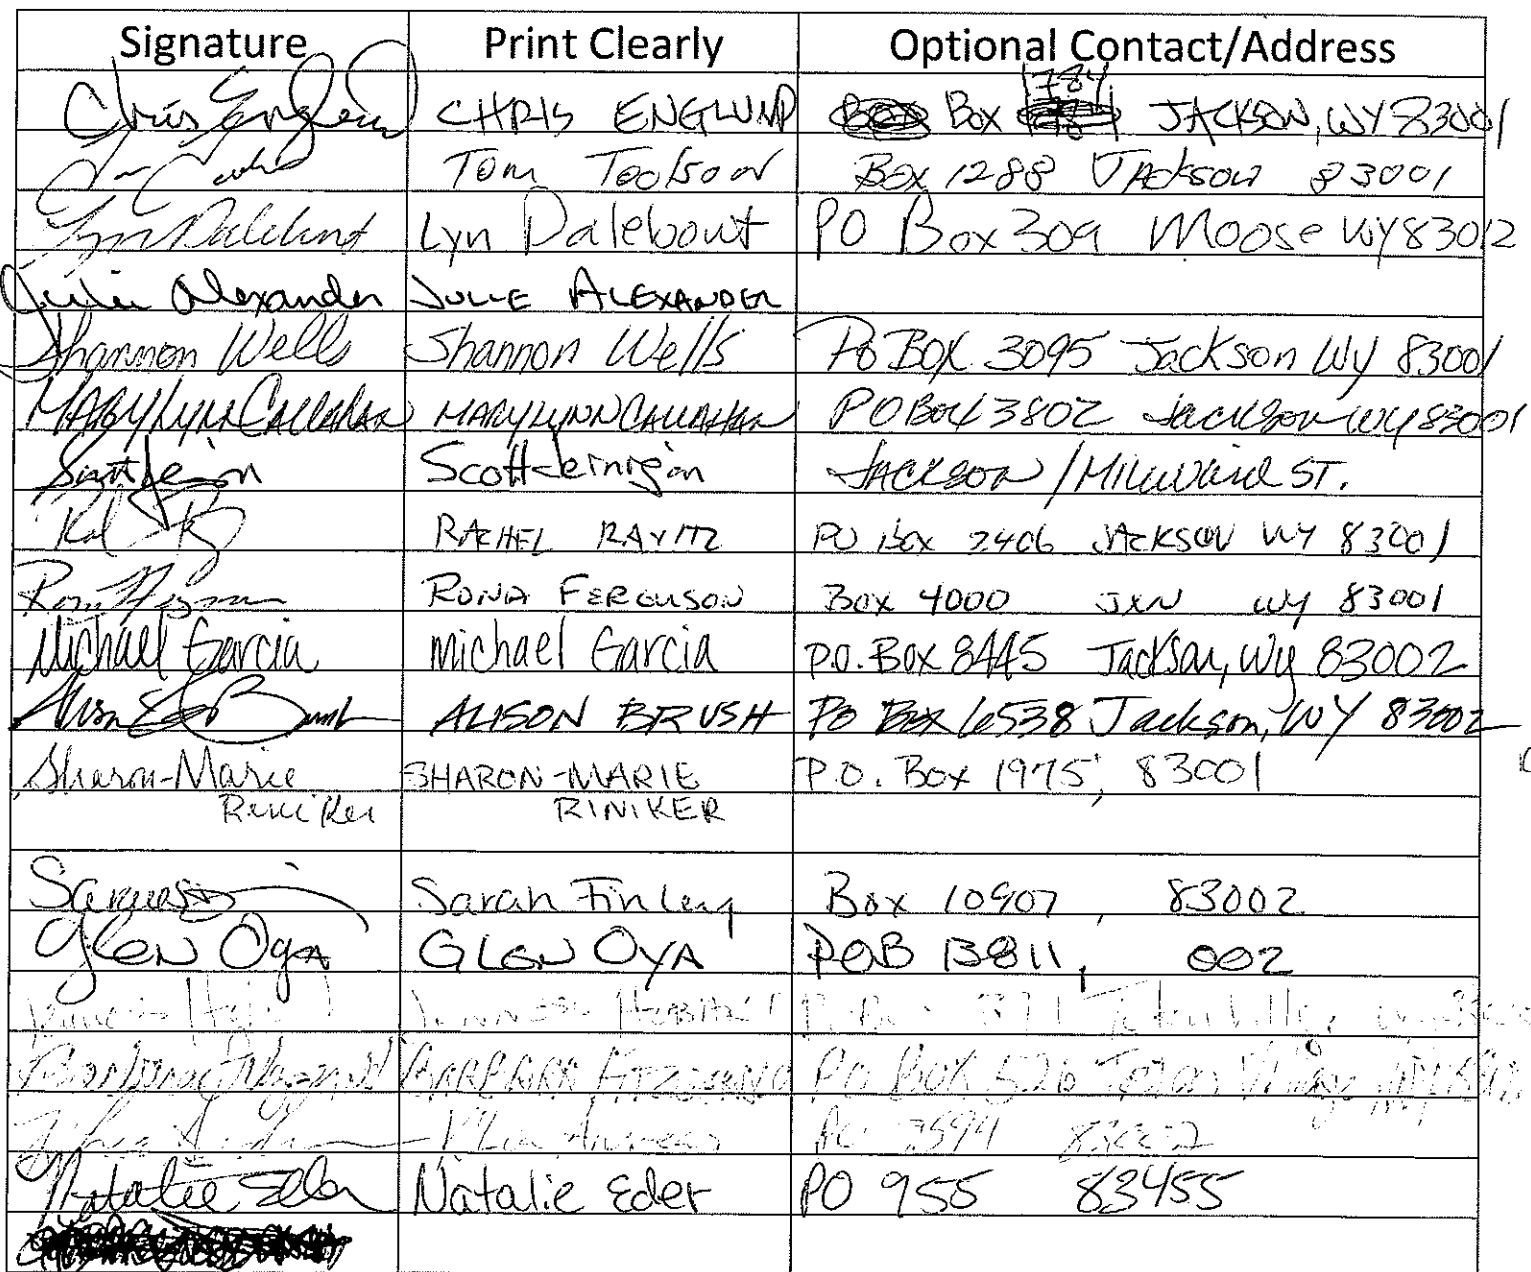 Signature Print Clearly Optional Contact/Address
Chris Englund CHRIS ENGLUND Box 784 JACKSON, WY 83001
Tom Toolson Box 1288 Jackson 83001
Lyn Dalebout Lyn Dalebout PO Box 309 Moose WY 83012
Julie Alexander JULIE ALEXANDER
Shannon Wells Shannon Wells Po Box 3095 Jackson Wy 83001
MARYLYNN CALLAHAN MARYLYNN CALLAHAN PO Box 3802 Jackson WY 83001
Scott Jernigan JACKSON / Millward ST.
RACHEL RAVITZ PO Box 2406 JACKSON WY 83001
RONA FERGUSON Box 4000 JXN WY 83001
Michael Garcia Michael Garcia P.O. Box 8445 Jackson, Wy 83002
ALISON BRUSH PO Box 6538 Jackson, WY 83002
Sharon-Marie SHARON-MARIE P.O. Box 1975, 83001
Riniker RINIKER
Sarah Finley Box 10907, 83002
Glen Oya GLEN OYA POB 13811, 002
Barbara BARBARA PO Box 526 Teton Village
83002
Natalie Eder Natalie Eder PO 955 83455